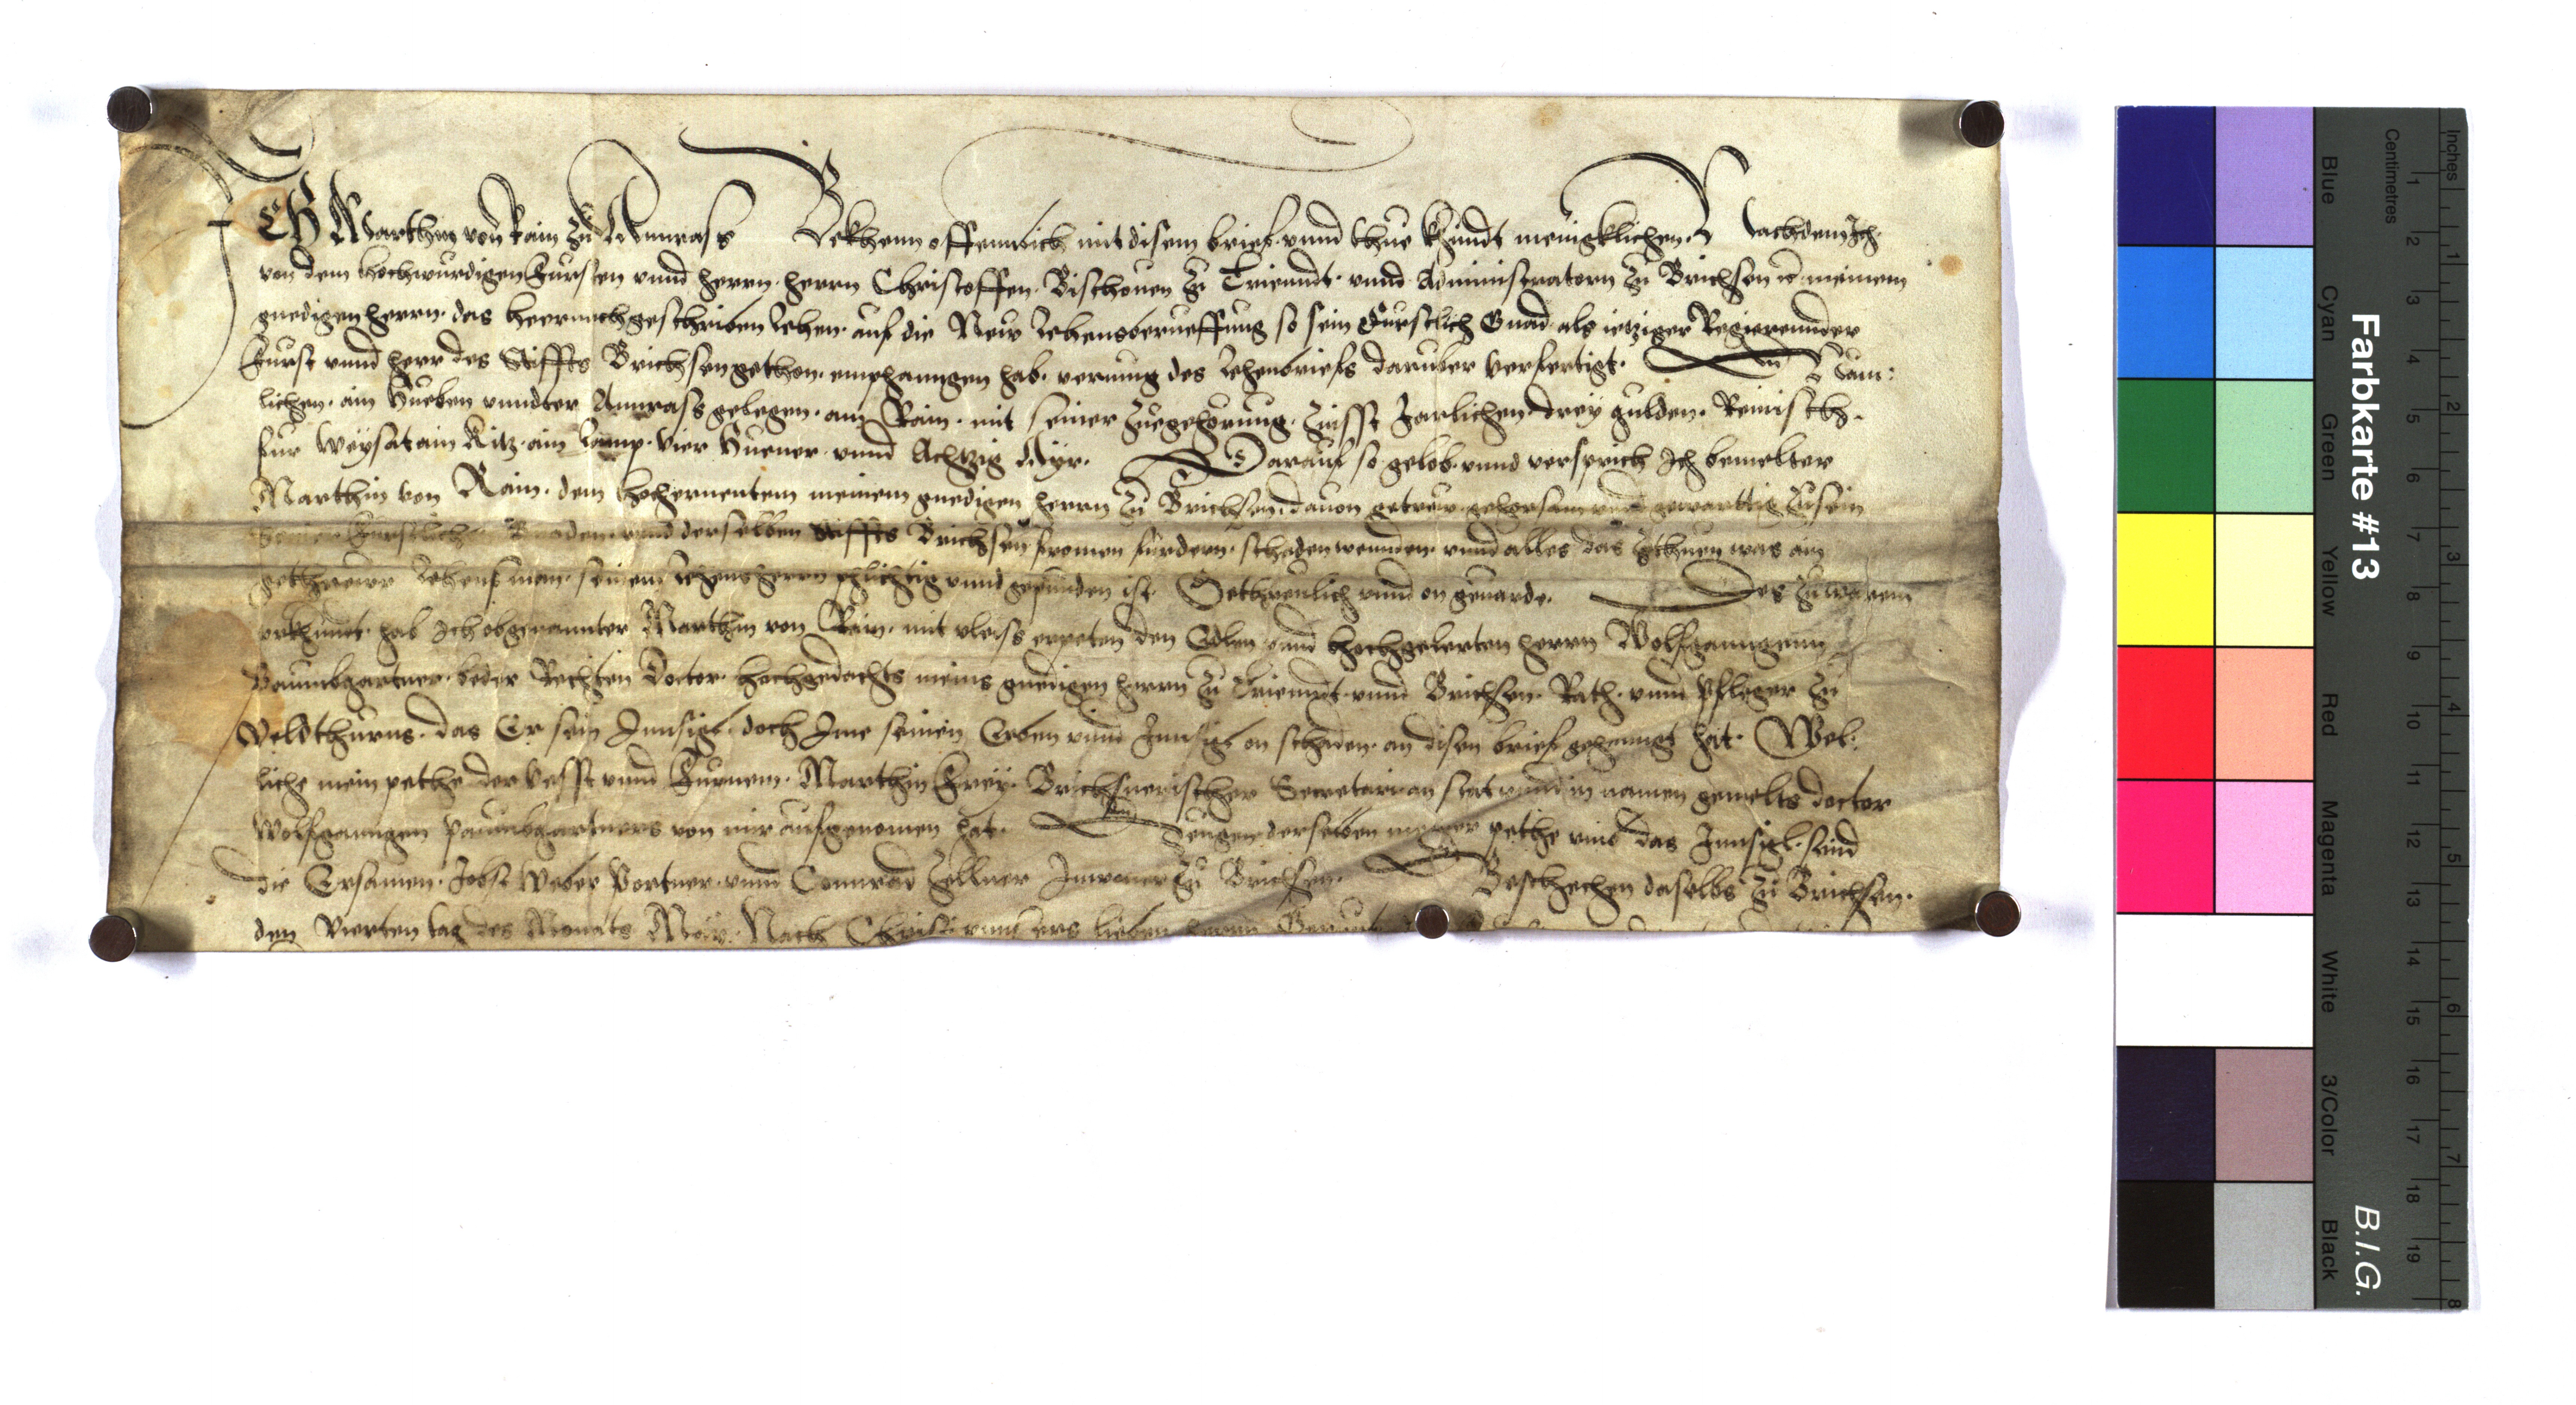 ICH Marthin von Rain zu Annrass Bekhenn offennlich mit disem brief vnnd thue khundt menigklichen. Nachdem Ich
von dem hochwurdigen Fursten vnnd herrn herrn Christoffen Bischouen zu Triennt vnnd Administratorn zu Brichsen rc meinem
gnedigen herrn das heernach geschriben Lehen auf die New Lehensberueffung so sein Furstlich Gnad als ietziger Regierennder
Furst vnnd herr des Stiffts Brichsen gethon emphanngen hab vermug des Lehenbriefs daruber verfertigt. Nam:
lichen ain Hueben vnndter Annrass gelegen am Rain mit seiner Zuegehorung Zinsst Jarlichen drey gulden Reinisch.
fur Weysat ain Kitz ain Lamp Vier Huener vnnd Achtzig Ayr. Darauf so gelob vnnd versprich Ich bemelter
Marthin von Rain dem hochernentem meinem gnedigen herrn zu Brichsen dauon getrew gehorsam vnd gewarttig zusein
Furstlich Gnaden vnnd derselben Stiffts Brichsen fromen furdern schaden wennden vnnd alles das zethuen was ain
gethrewr Lehensman seinem Lehensherrn phlichtig vnnd gepunden ist. Gethreulich vnnd on geuarde. Des zu warem
vrkhunt hab Ich obgenannter Marthin von Rain mit vleiss erpeten den Edlen vnnd hochgelerten herrn Wolfganngenn
Baumbgartner beder Rechten Doctor hochgedachts meins gnedigen herrn zu Triennt vnnd Brichsen Rath vnnd Pfleger zu
Veldthurns das Er sein Innsigl doch Ime seinen Erben vnnd Innsigl on schaden an disen brief gehenngt hat. Wel:
liche mein pethe der Vesst vnnd Furnem Marthin Frey Brichsnerischer Secretari an stat vnnd in namen gemelts doctor
Wolfganngen Paumbgartners von mir aufgenomen hat. Zeugen derselben meiner pethe vmb das Innsigl sind
die Ersamen Jobst Weber Portner vnnd Connrad Zellner Inwoner zu Brichsen. Beschechen daselbs zu Brichsen.
den Vierten tag des Monats May Nach Christi vnnsers lieben herrn
Farbkarte #13
B.I.G.
Inches 1 2 3 4 5 6 7 8
Centimetres 1 2 3 4 5 6 7 8 9 10 11 12 13 14 15 16 17 18 19
Blue Cyan Green Yellow Red Magenta White 3/Color Black